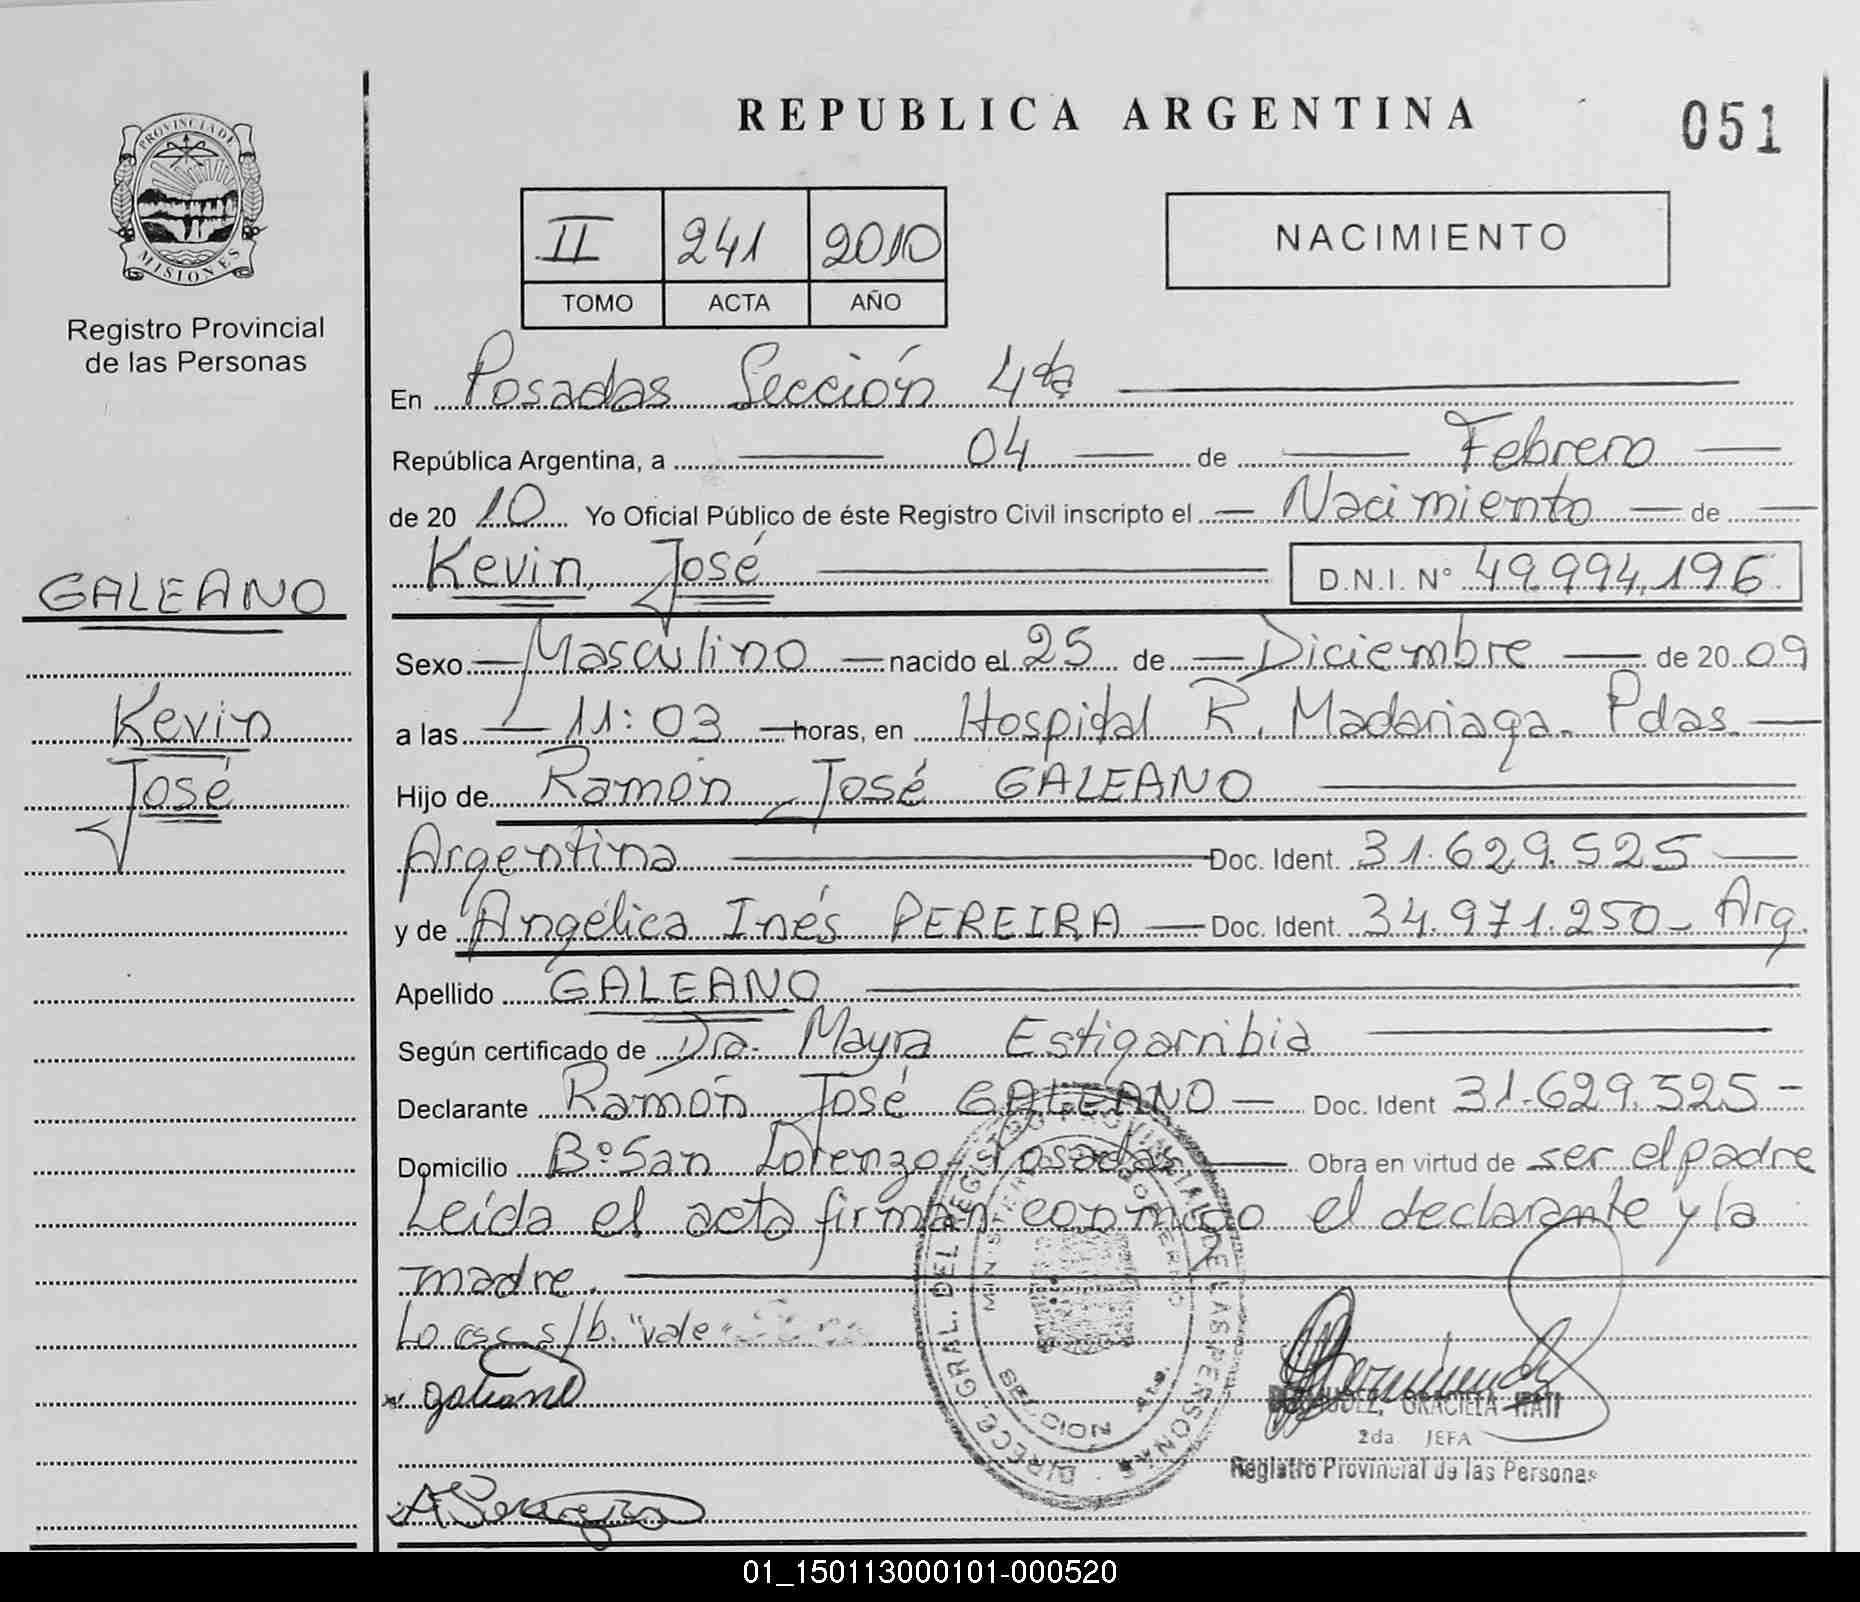 REPUBLICA ARGENTINA
051
PROVINCIA DE
MISIONES
Registro Provincial
de las Personas
II 241 2010
TOMO ACTA AÑO
NACIMIENTO
En Posadas Sección 4ta
República Argentina, a 04 de Febrero
de 20 10 Yo Oficial Público de éste Registro Civil inscripto el Nacimiento de
Kevin José D.N.I. Nº 49.994.196
GALEANO
Kevin
José
Sexo Masculino nacido el 25 de Diciembre de 20 09
a las 11:03 horas, en Hospital R. Madariaga. Pdas.
Hijo de Ramón José GALEANO
Argentina Doc. Ident. 31.629.525
y de Angélica Inés PEREIRA Doc. Ident. 34.971.250 - Arg.
Apellido GALEANO
Según certificado de Dra. Mayra Estigarribia
Declarante Ramón José GALEANO Doc. Ident 31.629.525 -
Domicilio Bº San Lorenzo - Posadas Obra en virtud de ser el padre
Leída el acta firman conmigo el declarante y la
madre.
s/b. "vale
galeano
DIRECC. GRAL. DEL REGISTRO PROVINCIAL DE LAS PERSONAS
MINISTERIO GOBIERNO
SECCION 4ta.
GRACIELA ITATI
2da JEFA
Registro Provincial de las Personas
01_150113000101-000520